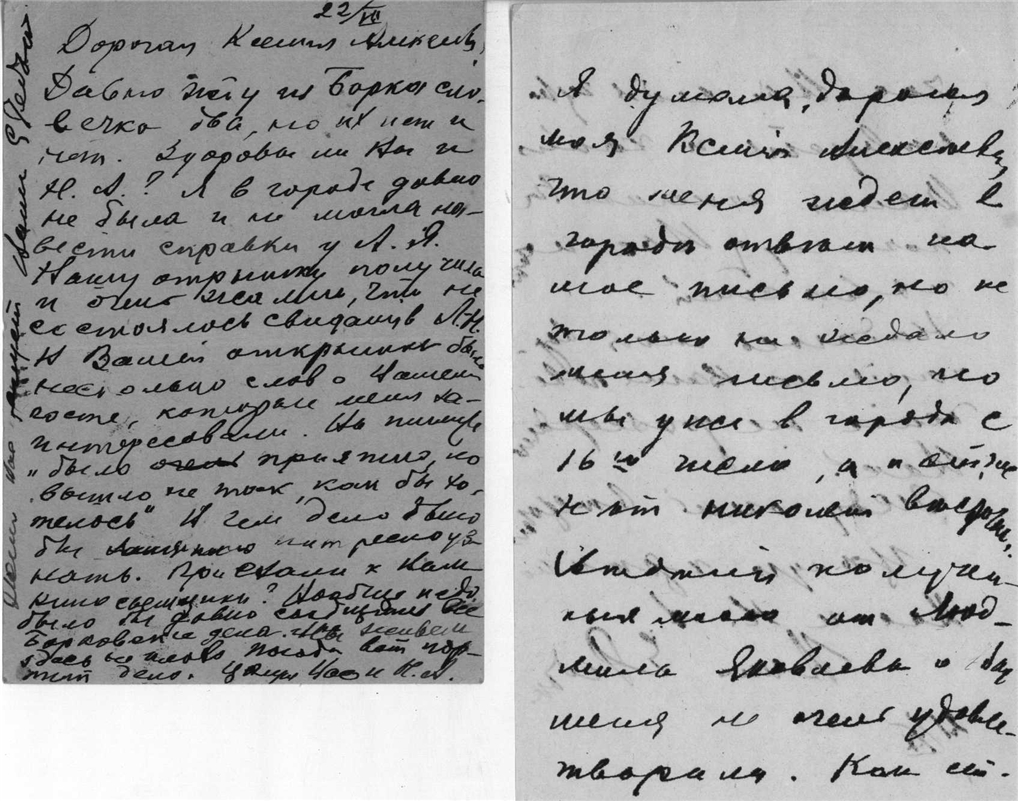 22/VII
Дорогая Ксения Алексеев.
Давно жду из Борка сло-
вечка два, но их нет и
нет. Здоровы ли Вы и
Н. А.? Я в городе давно
не была и не могла на-
вести справки у Л. Я.
Вашу открытку получила
и очень жалею, что не
состоялось свидание Л.Я.
В Вашей открытке было
несколько слов о Вашем
госте, которые меня за-
интересовали. Вы пишете
„было очень приятно, но
вышло не так, как бы хо-
телось" В чем дело было
бы интересно уз-
нать. Приехали к Вам
киносъемщики? Вообще надо
было бы давно сообщить все
Борковские дела. Мы живем
здесь не плохо погода вот пор-
тит дело. Целую Вас и Н. А.
Я думала, дорогая
моя Ксения Алексеевна,
что меня ждет в
городе ответ на
мое письмо, но не
только не ждало
меня письмо, но
мы уже в городе с
16го числа, а от Вас
нет никаких
получен-
ныя мною от Люд-
милы Яковлевы о Вас
меня не очень удовле-
творили. Как ст-